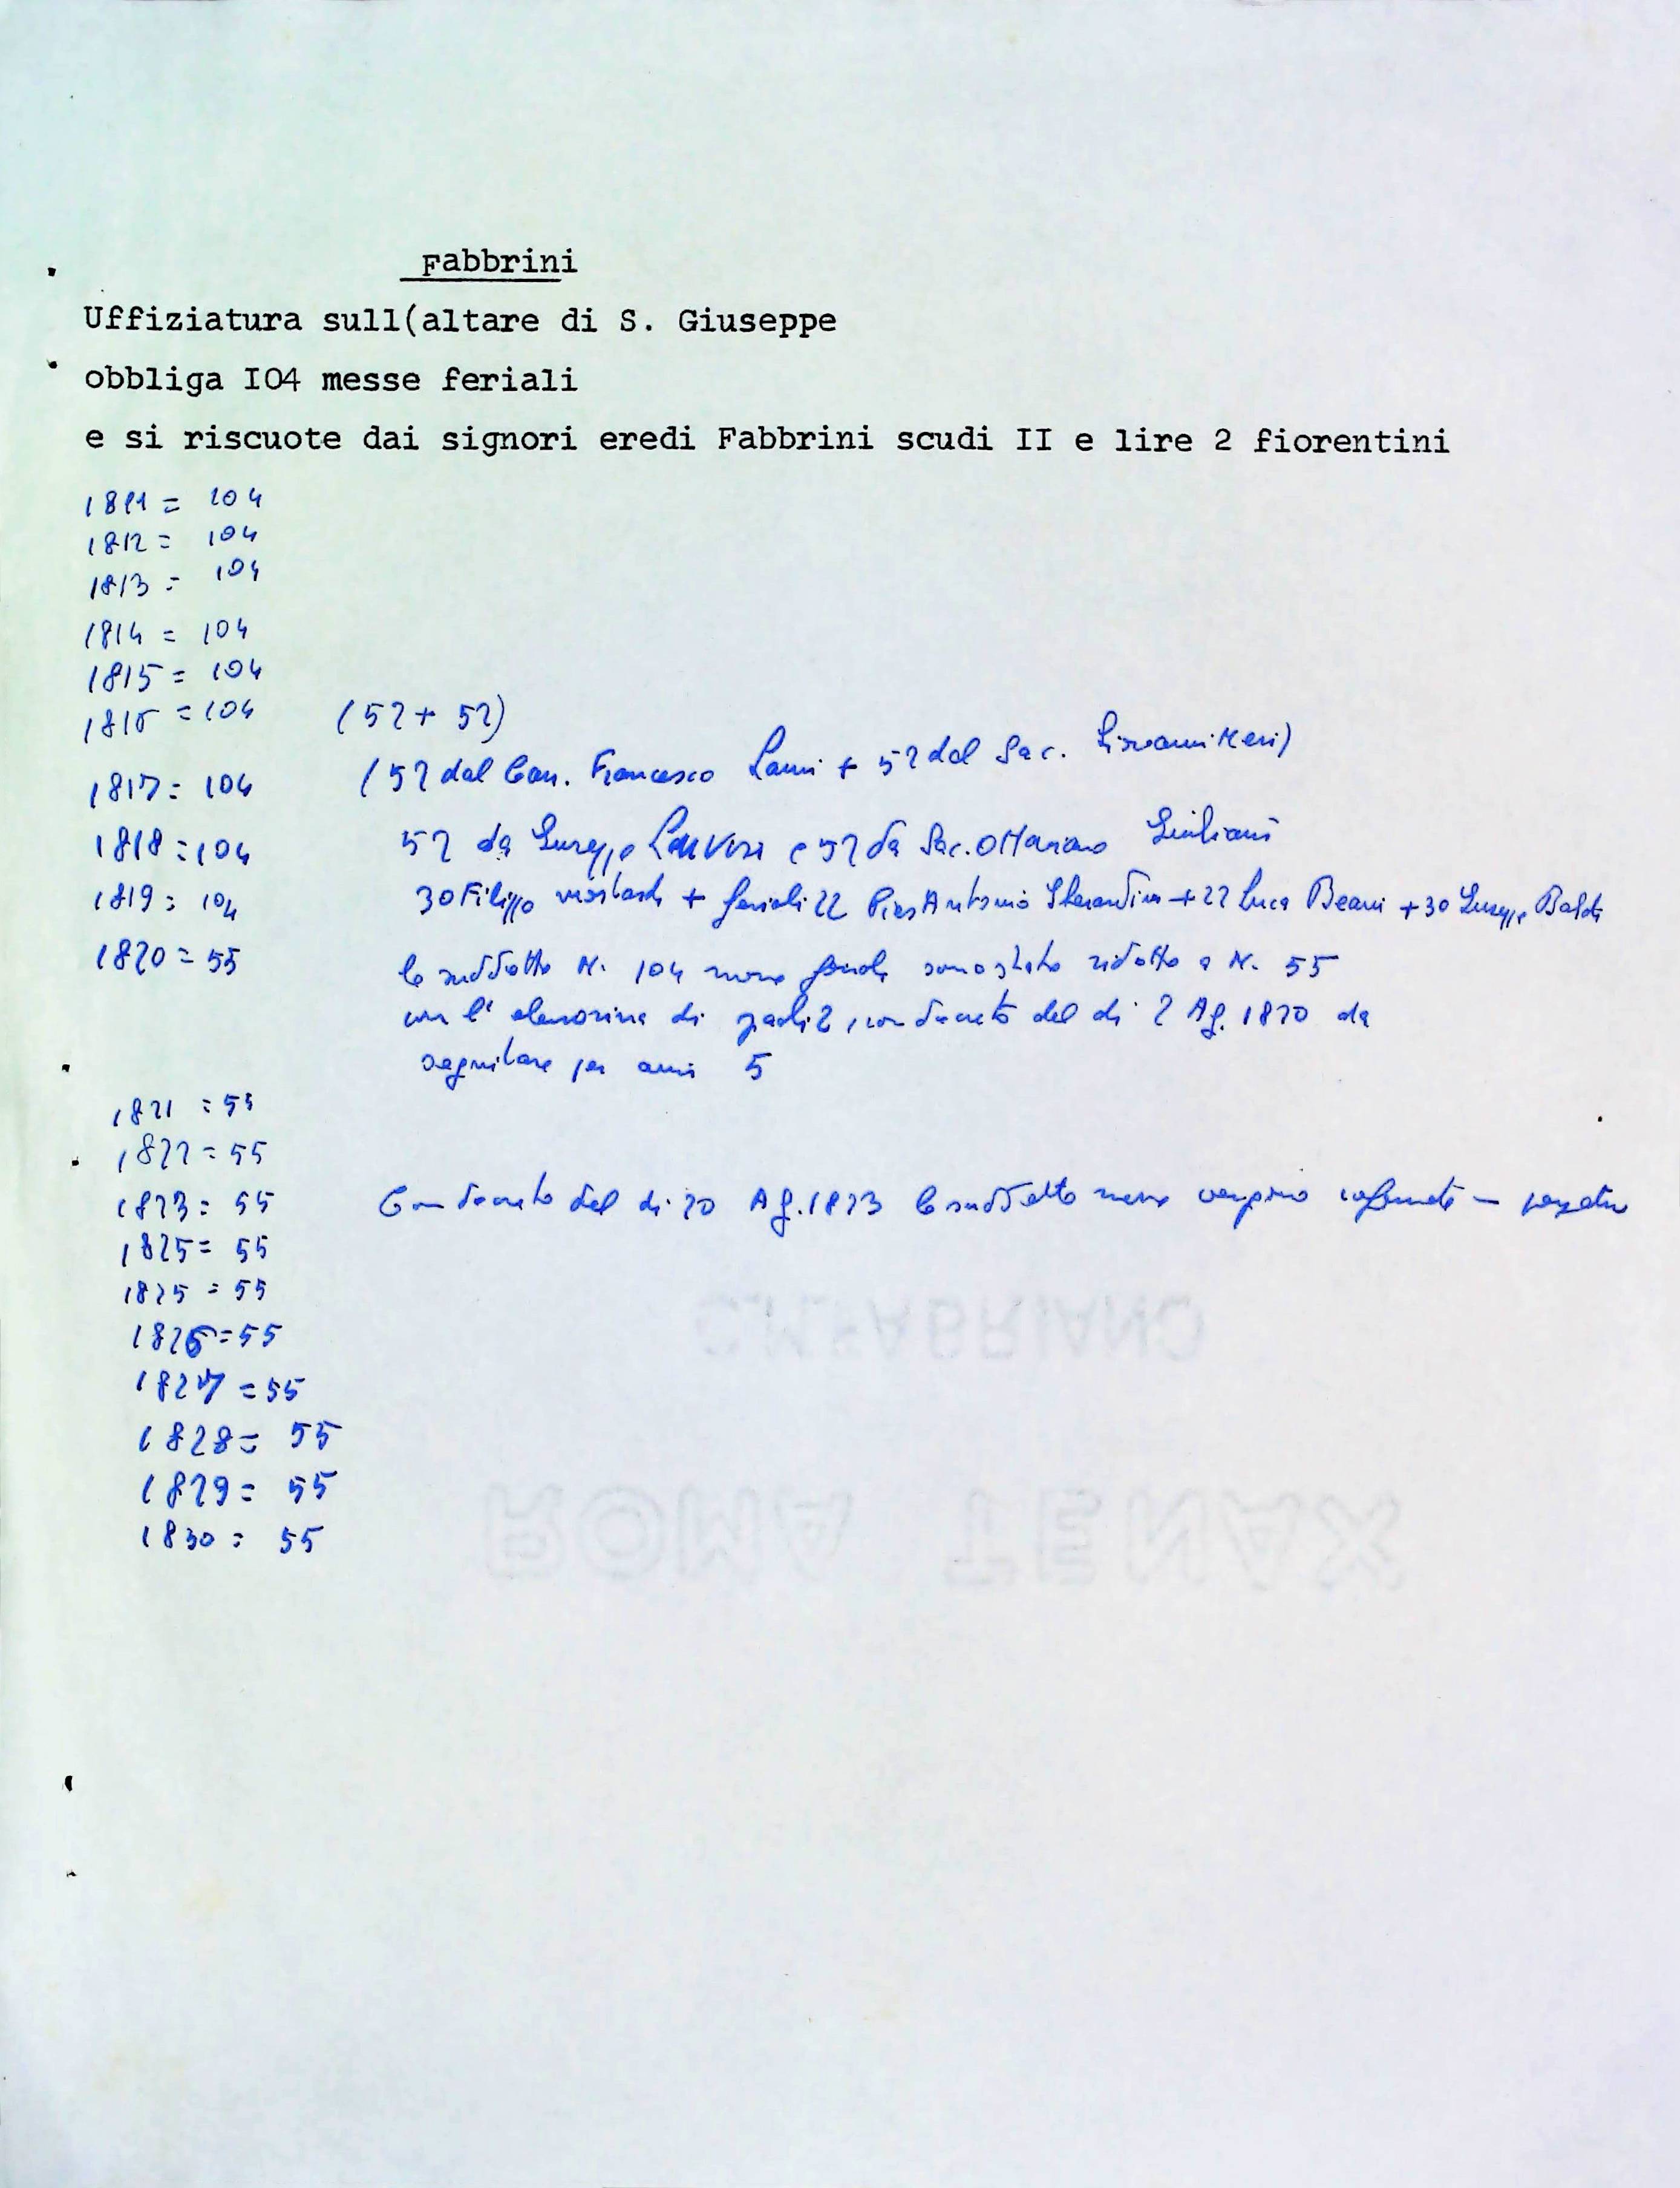 Fabbrini
Uffiziatura sull(altare di S. Giuseppe
obbliga I04 messe feriali
e si riscuote dai signori eredi Fabbrini scudi II e lire 2 fiorentini
1811 = 104
1812 = 104
1813 = 104
1814 = 104
1815 = 104
1816 = 104 (52 + 52)
1817 = 104 (52 dal Can. Francesco Lanni + 52 dal Sac. Giovanni Neri)
1818 = 104 52 da Giuseppe e 52 da Sac. Ottaviano Giuliani
1819 = 104 30 Filippo + feriali 22 Pier Antonio + 22 Luca Beani + 30 Giuseppe Baldi
1820 = 55 le suddette N. 104 messe feriali sono state ridotte a N. 55
con l' elemosina di paoli 2, con decreto del dì 2 Ag. 1820 da
seguitare per anni 5
1821 = 55
1822 = 55
1823 = 55 Con decreto del dì 20 Ag. 1823 le suddette messe vengono
1825 = 55
1825 = 55
1826 = 55
1827 = 55
1828 = 55
1829 = 55
1830 = 55
C.M.FABRIANO
ROMA TENAX